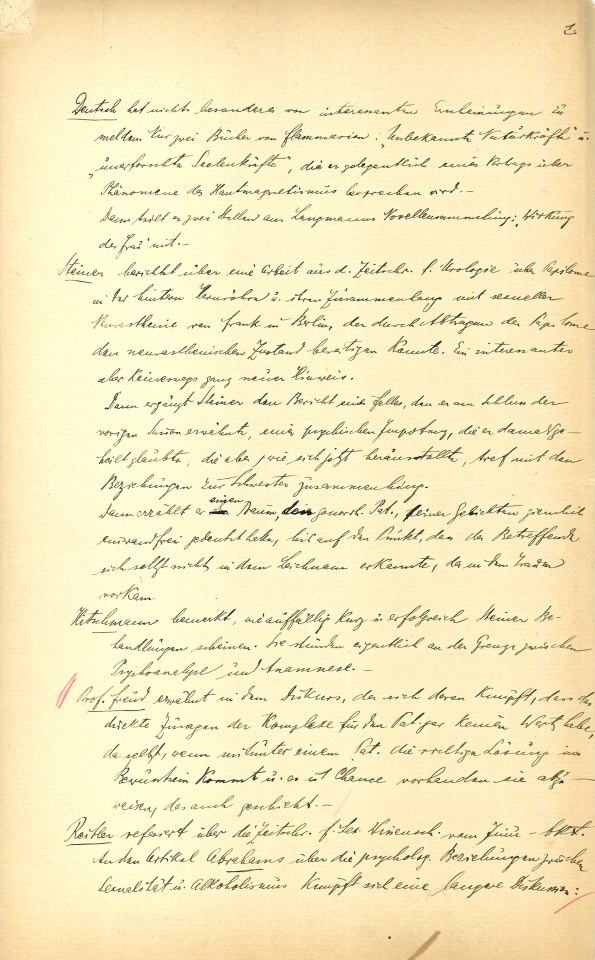 1
Deutsch hat nichts besonderes von interessanten zu
melden. Nur zwei Bücher von Flammarion: "Unbekannte Naturkräfte" u.
"unerforschte Seelenkräfte", die er gelegentlich eines Vortrags über
Phänomene des Hautmagnetismus besprechen wird. –
Dann teilt er zwei Stellen aus Langmanns Novellensammlung: "Wirkung
der Frau" mit. –
Steiner berichtet über eine Arbeit aus d. Zeitschr. f. Urologie über Papilome
in der hintern Harnröhre u. ihren Zusammenhang mit sexueller
Neurasthenie von Frank in Berlin, der durch Abtragen der Papilome
den neurasthenischen Zustand beseitigen konnte. Ein interessanter
aber keineswegs ganz neuer Hinweis.
Dann ergänzt Steiner den Bericht eines Falles, den er am Schluss der
vorigen Saison erwähnte, einer psychischen Impotenz, die er damals ge-
heilt glaubte, die aber, wie sich jetzt herausstellte, tief mit den
Beziehungen zur Schwester zusammenhing.
Dann erzählt er einen Traum, den Pat., seiner Geliebten ziemlich
einwandfrei gedeutet habe, bis auf den Punkt, dass der Betreffende
sich selbst nicht in dem Leichnam erkannte, der in dem Traum
vorkam.
Hitschmann bemerkt, wie auffällig kurz u. erfolgreich Steiner Be-
handlungen scheinen. Sie stünden eigentlich an der Grenze zwischen
Psychoanalyse und Anamnese. –
Prof. Freud erwähnt in dem Diskurs, der sich daran knüpft, dass das
direkte Zusagen der Komplexe für den Pat. gar keinen Wert habe,
da selbst, wenn mitunter einem Pat. die richtige Lösung ins
Bewusstsein kommt u. es ist Chance vorhanden sie abzu-
weisen, das auch geschieht. –
Reitler referiert über die Zeitschr. f. Sex. Wissensch. vom Juni –
An den Artikel Abrahams über die psycholog. Beziehungen zwischen
Sexualität u. Alkoholismus knüpft sich eine längere Diskussion: